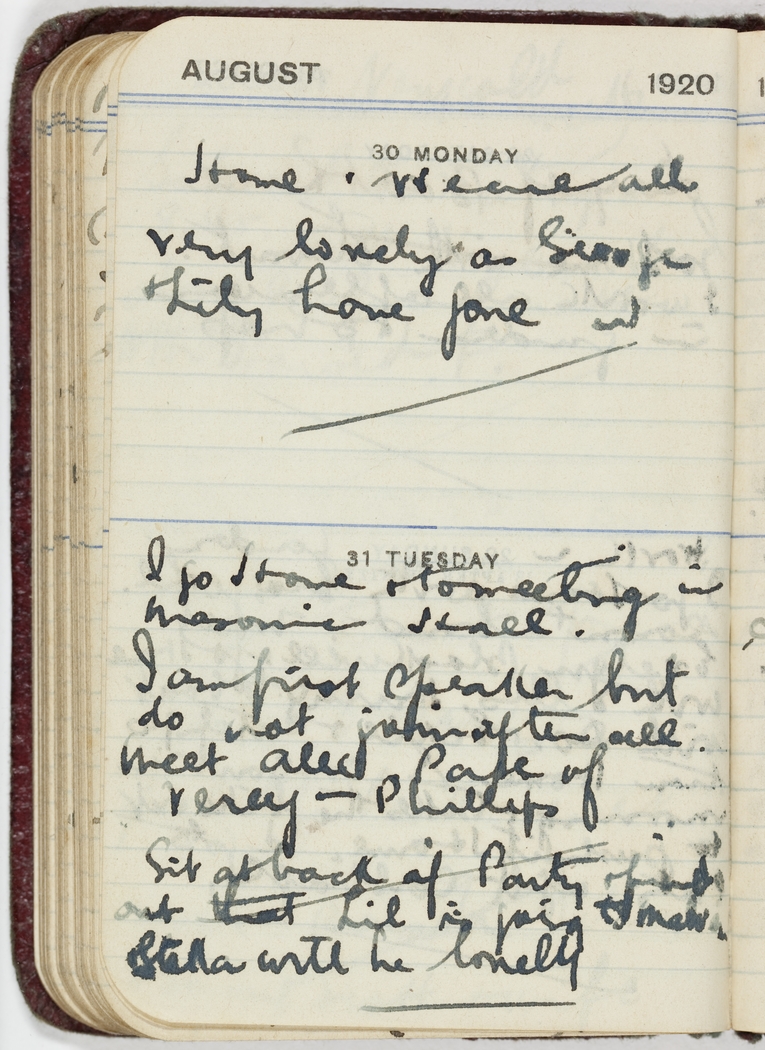 AUGUST 1920
30 MONDAY
Home. We are all
very lonely as George
+ Lily have gone
31 TUESDAY
I go Home + to meeting in
Masonic Hall.
I am first Speaker but
do not join after all.
Meet Page of
Verey — Phillips
Sit at back of Party + find
out that Lil is going
Stella will be lonely